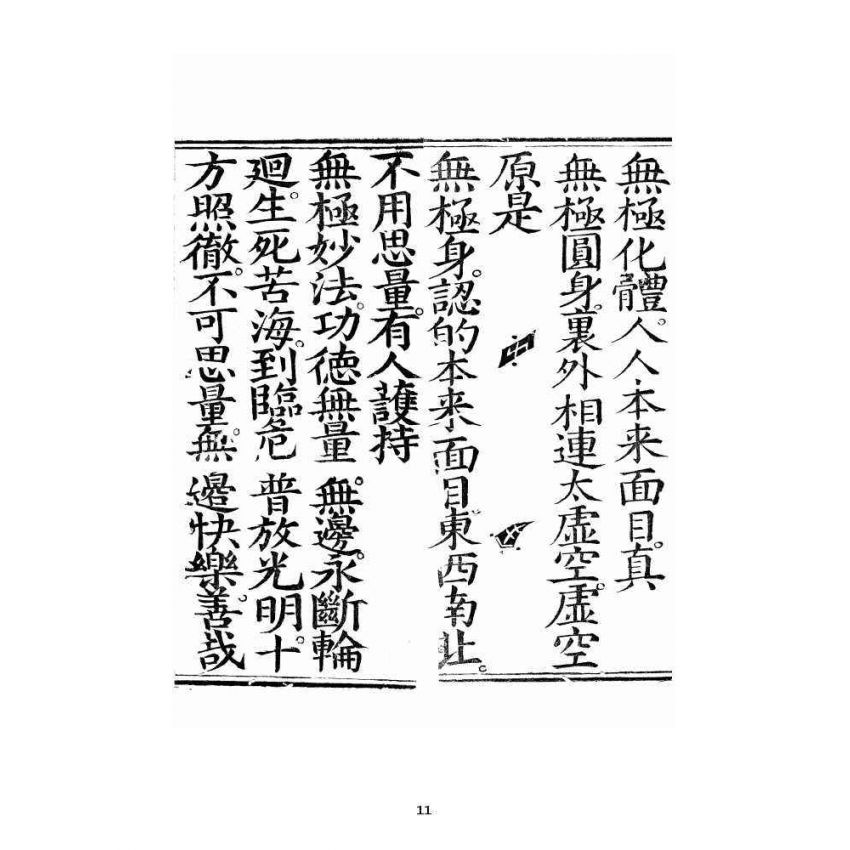 無極化體人人本来面目真
無極圓身裏外相連太虛空。虛空
原是
無極身。認的本来面目東西南北。
不用思量。有人護持
無極妙法。功德無量無邊。永斷輪
廻。生死苦海。到臨危普放光明。十
方照徹。不可思量。無邊快樂。善哉
11